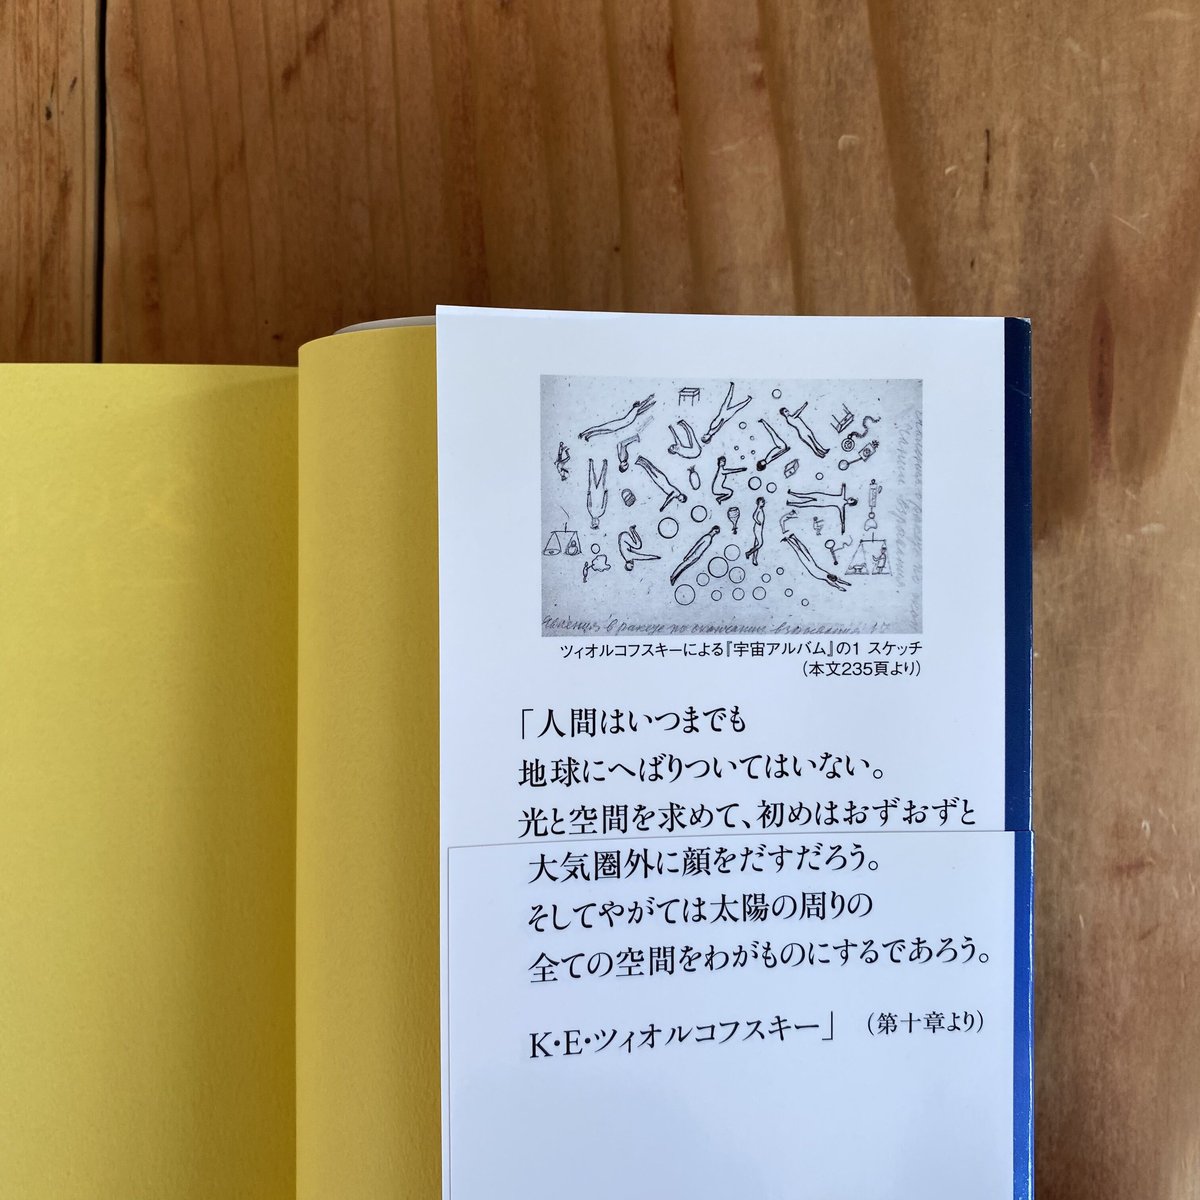 Явления в ракете по окончании взрывания
ツィオルコフスキーによる『宇宙アルバム』の1 スケッチ
(本文235頁より)
「人間はいつまでも
地球にへばりついてはいない。
光と空間を求めて、初めはおずおずと
大気圏外に顔をだすだろう。
そしてやがては太陽の周りの
全ての空間をわがものにするであろう。
K・E・ツィオルコフスキー」 (第十章より)